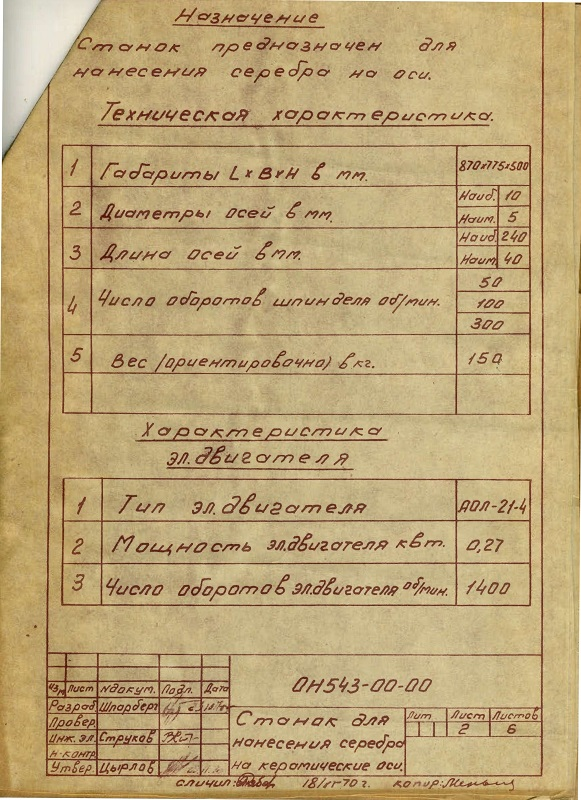 Назначение
Станок предназначен для
нанесения серебра на оси.
Техническая характеристика.
1 Габариты L×B×H в мм. 870×775×500
2 Диаметры осей в мм. Наиб. 10
Наим. 5
3 Длина осей в мм. Наиб. 240
Наим. 40
4 Число оборотов шпинделя об/мин. 50
100
300
5 Вес (ориентировочно) в кг. 150
Характеристика
эл.двигателя
1 Тип эл.двигателя АОЛ-21-4
2 Мощность эл.двигателя квт. 0,27
3 Число оборотов эл.двигателя об/мин. 1400
Изм Лист № докум. Подп. Дата
ОН543-00-00
Разраб Шпарберг
Провер.
Инж. эл. Струков
Н-контр.
Утвер. Цырлов
Станок для
нанесения серебра
на керамические оси.
Лит Лист Листов
2 6
сличил: 70 г. копир: